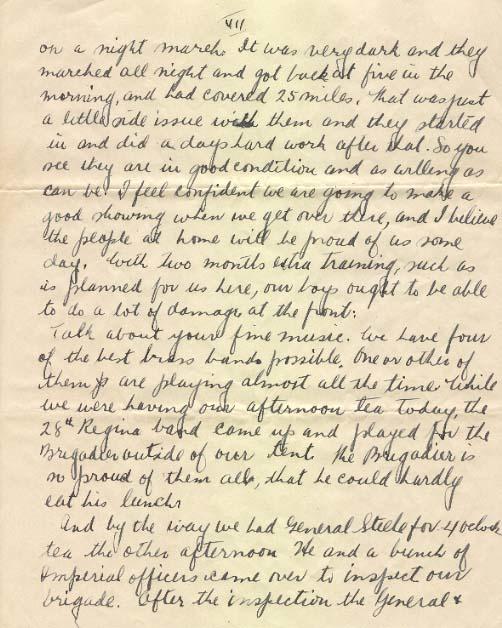 VII
on a night march. It was very dark and they
marched all night and got back at five in the
morning, and had covered 25 miles. That was just
a little side issue with them and they started
in and did a days hard work after that. So you
see they are in good condition and as willing as
can be. I feel confident we are going to make a
good showing when we get over there, and I believe
the people at home will be proud of us some
day. With two months extra training, such as
is planned for us here, our boys ought to be able
to do a lot of damage at the front.
Talk about your fine music. We have four
of the best brass bands possible. One or other of
them are playing almost all the time. While
we were having our afternoon tea today, the
28th Regina band came up and played for the
Brigadier outside of our tent. The Brigadier is
so proud of them all, that he could hardly
eat his lunch.
And by the way we had General Steele for 4 oclock
tea the other afternoon He and a bunch of
Imperial officers came over to inspect our
brigade. After the inspection the General &